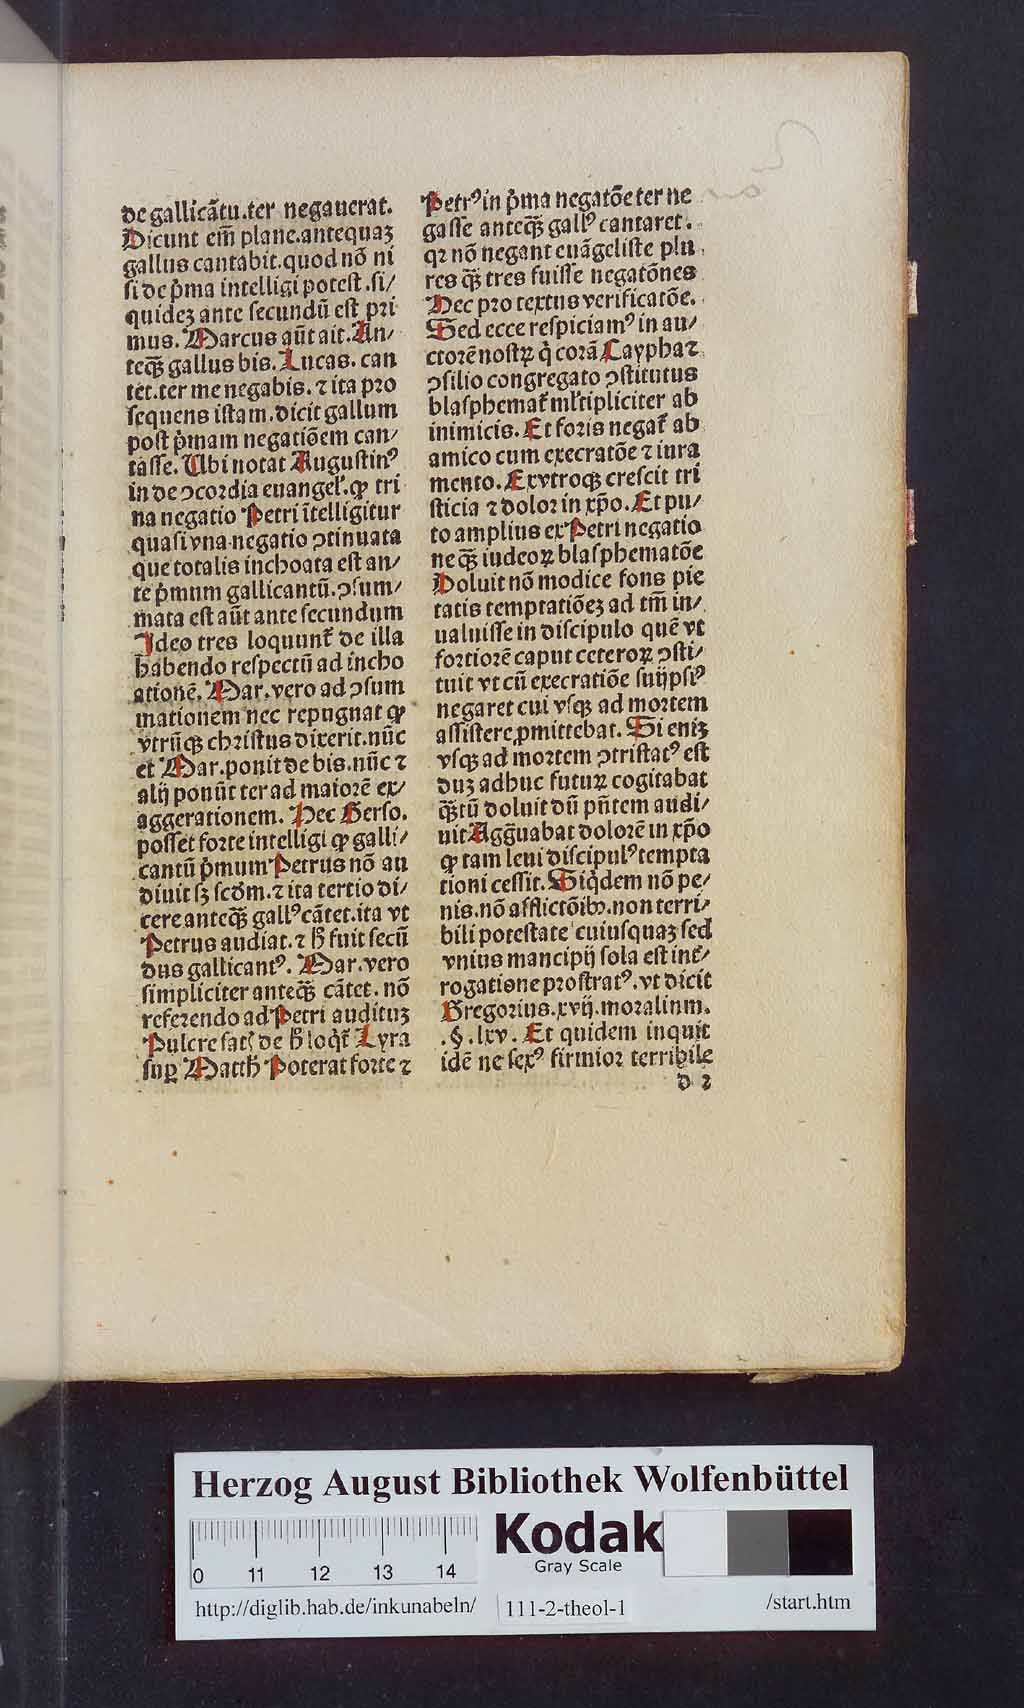 de gallicātu.ter negauerat.
Dicunt em̄ plane.antequaꝫ
gallus cantabit.quod nō ni
si de p̄ma intelligi potest.si/
quideꝫ ante secundū est pri
mus. Marcus aūt ait. An/
teqꝫ̄ gallus bis. Lucas. can
tet.ter me negabis. ⁊ ita pro
sequens istam.dicit gallum
post p̄mam negatiōem can/
tasse. Ubi notat Augustin⁹
in de ↄcordia euangel̓.ꝙ tri
na negatio Petri ītelligitur
quasi vna negatio ↄtinuata
que totalis inchoata est an/
te p̄mum gallicantū.ↄsum/
mata est aūt ante secundum
Ideo tres loquunt̓ de illa
habendo respectū ad incho
ationē. Mar.vero ad ↄsum
mationem nec repugnat ꝙ
vtrūqꝫ christus dixerit.nūc
et Mar.ponit de bis.nūc ⁊
alij ponūt ter ad maiorē ex/
aggerationem. Hec Gerso.
posset forte intelligi ꝙ galli/
cantū p̄mum Petrus nō au
diuit sꝫ scd̄m.⁊ ita tertio di/
cere anteqꝫ̄ gall⁹ cātet.ita vt
Petrus audiat.⁊ h̄ fuit secū
dus gallicant⁹. Mar.vero
simpliciter anteqꝫ̄ cātet. nō
referendo ad Petri audituꝫ
Pulcre satꝭ de h̄ loq̇t̓ Lyra
suꝑ Matth̄ Poterat forte ⁊
Petr⁹ in p̄ma negatōe ter ne
gasse anteqꝫ̄ gall⁹ cantaret.
qꝛ nō negant euāgeliste plu
res qꝫ̄ tres fuisse negatōnes
Hec pro textus verificatōe.
Sed ecce respiciam⁹ in au/
ctorē nostꝝ q̇ corā Caypha ⁊
ↄsilio congregato ↄstitutus
blasphemat̓ ml̓tipliciter ab
inimicis. Et foris negat̓ ab
amico cum execratōe ⁊ iura
mento. Exvtroqꝫ crescit tri
sticia ⁊ dolor in xp̄o. Et pu/
to amplius ex Petri negatio
neqꝫ̄ iudeoꝝ blasphematōe
Doluit nō modice fons pie
tatis temptatiōeꝫ ad tm̄ in/
ualuisse in discipulo quē vt
fortiorē caput ceteroꝝ ↄsti/
tuit vt cū execratiōe suijpsi⁹
negaret cui vsqꝫ ad mortem
assistere ꝓmittebat. Si eniꝫ
vsqꝫ ad mortem ↄtristat⁹ est
duꝫ adhuc futuꝝ cogitabat
qꝫ̄tū doluit dū pn̄tem audi/
uit Agḡuabat dolorē in xp̄o
ꝙ tam leni discipul⁹ tempta
tioni cessit. Siq̇dem nō pe/
nis.nō afflictōibꝰ.non terri/
bili potestate cuiusquaꝫ sed
vnius mancipij sola est int̓/
rogatione prostrat⁹.vt dicit
Gregorius.xvij.moralium.
.§.lxv. Et quidem inquit
idē ne sex⁹ firmior terribile
d 2
Herzog August Bibliothek Wolfenbüttel
0 11 12 13 14
Kodak
Gray Scale
http://diglib.hab.de/inkunabeln/ 111-2-theol-1 /start.htm